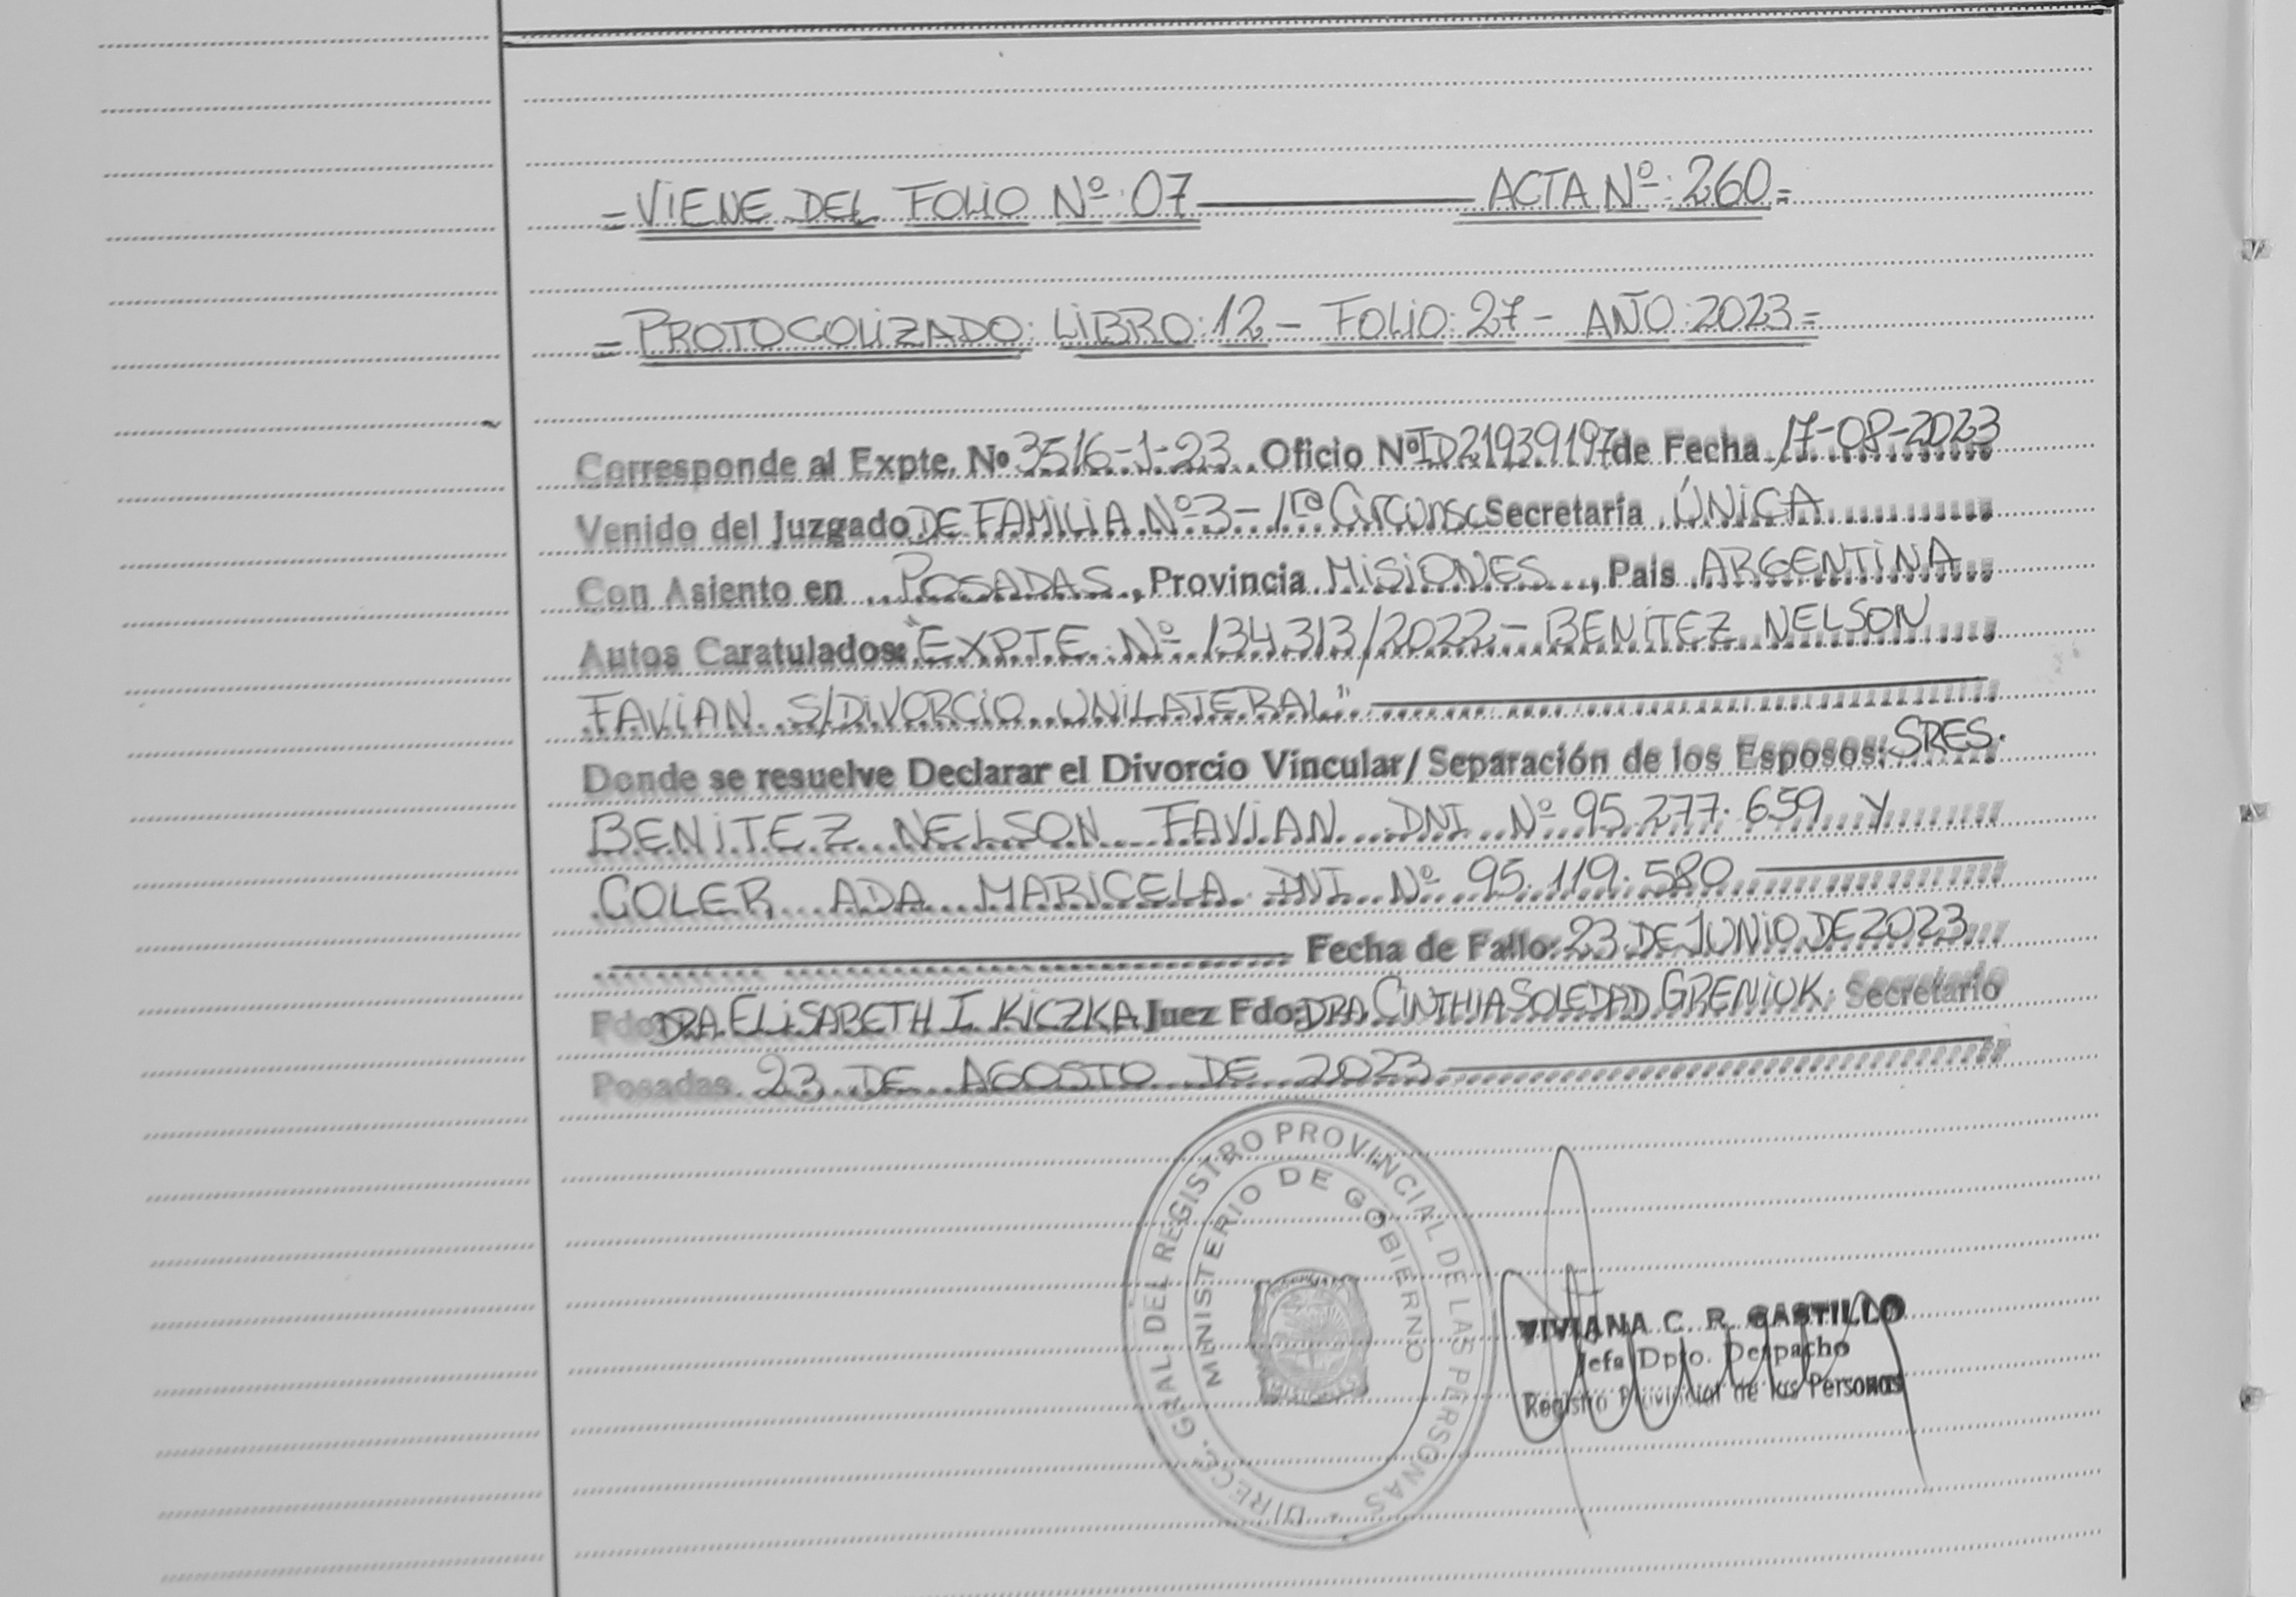 = VIENE DEL FOLIO Nº: 07 ———— ACTA Nº: 260 =
= PROTOCOLIZADO: LIBRO: 12 - FOLIO: 27 - AÑO: 2023 =
Corresponde al Expte. Nº 3516-1-23 Oficio Nº ID21939197 de Fecha 17-08-2023
Venido del Juzgado DE FAMILIA Nº 3 - 1ra Circunsc Secretaría ÚNICA
Con Asiento en POSADAS, Provincia MISIONES, País ARGENTINA
Autos Caratulados: "EXPTE Nº 134313/2022 - BENITEZ NELSON
FAVIAN S/DIVORCIO UNILATERAL"
Donde se resuelve Declarar el Divorcio Vincular/Separación de los Esposos: SRES.
BENITEZ NELSON FAVIAN DNI Nº 95.277.659 Y
COLER ADA MARICELA DNI Nº 95.119.580
Fecha de Fallo: 23 DE JUNIO DE 2023
Fdo: DRA. ELISABETH I. KICZKA Juez Fdo: DRA. CINTHIA SOLEDAD GRENIUK Secretario
Posadas 23 DE AGOSTO DE 2023
DIRECC. GRAL. DEL REGISTRO PROVINCIAL DE LAS PERSONAS
MINISTERIO DE GOBIERNO
MISIONES
VIVIANA C. R. CASTILLO
Jefa Dpto. Despacho
Registro Provincial de las Personas